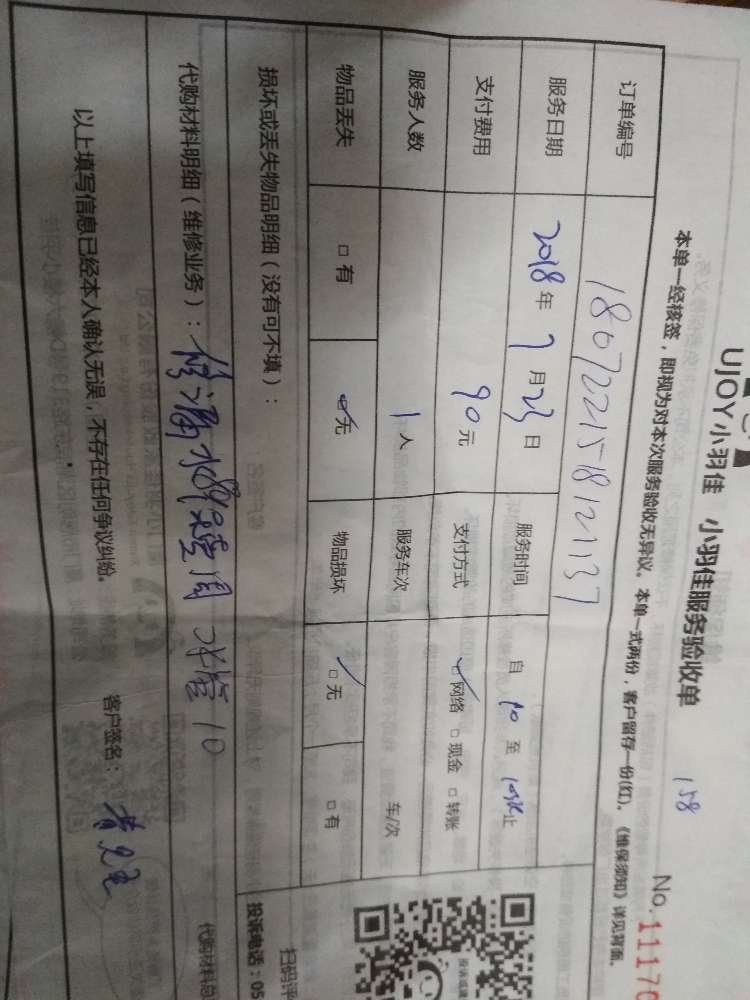 UJOY小羽佳 小羽佳服务验收单
158
No.11170
本单一经核签，即视为对本次服务验收无异议。本单一式两份，客户留存一份(红)。《维保须知》详见背面。
订单编号 180722158121137
服务日期 2018年7月23日 服务时间 自 10 至 止
支付费用 90元 支付方式 ☑网络 □现金 □转账
服务人数 1人 服务车次 车/次
物品丢失 □有 ☑无 物品损坏 ☑无 □有
损坏或丢失物品明细（没有可不填）：
扫码评
投诉电话：05
代购材料明细（维修业务）：修漏水 水管10
代购材料总
以上填写信息已经本人确认无误，不存在任何争议纠纷。
客户签名：黄先生